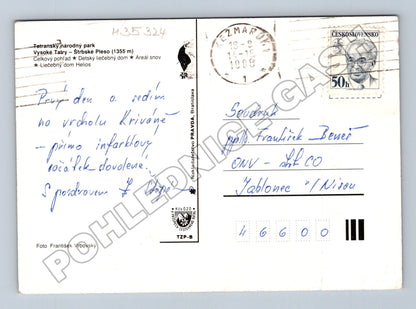 M 35 324
Tatranský národný park
Vysoké Tatry – Štrbské Pleso (1355 m)
Celkový pohľad ★ Detský liečebný dom ★ Areál snov
★ Liečebný dom Helios
Prvý den a sedím
na vrcholu Kriváně
– přímo infarktový
začátek dovolené.
S pozdravem
Foto František
Vydavateľstvo PRAVDA, Bratislava
TZP-B
KEŽMAROK
1
ČESKOSLOVENSKO
50h
Soudruh
František Beneš
ONV – CO
Jablonec n/Nisou
46600
POHLEDNICE-GASA